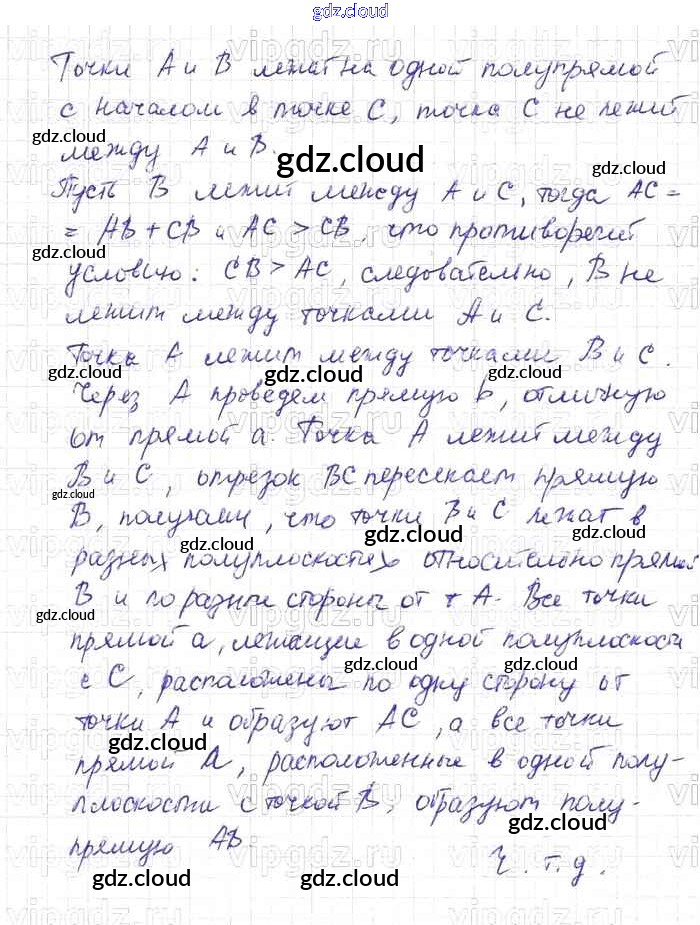 gdz.cloud
Точки А и В лежат на одной полупрямой
с началом в точке С, точка С не лежит
gdz.cloud
между А и В.
gdz.cloud
gdz.cloud
Пусть В лежит между А и С, тогда АС =
= АВ + СВ и АС > СВ, что противоречит
gdz.cloud gdz.cloud
условию: СВ > АС, следовательно, В не
лежит между точками А и С.
Точка А лежит между точками В и С.
gdz.cloud gdz.cloud gdz.cloud
Через А проведем прямую b, отличную
от прямой а. Точка А лежит между
В и С, отрезок ВС пересекает прямую
gdz.cloud
В, получаем, что точки В и С лежат в
gdz.cloud gdz.cloud
разных полуплоскостях относительно прямой
В и по разные стороны от т А. Все точки
gdz.cloud
прямой а, лежащие в одной полуплоскости
gdz.cloud gdz.cloud
с С, расположены по одну сторону от
точки А и образуют АС, а все точки
gdz.cloud
прямой а, расположенные в одной полу-
gdz.cloud
плоскости с точкой В, образуют полу-
gdz.cloud
прямую АВ
Ч. т. д.
gdz.cloud gdz.cloud